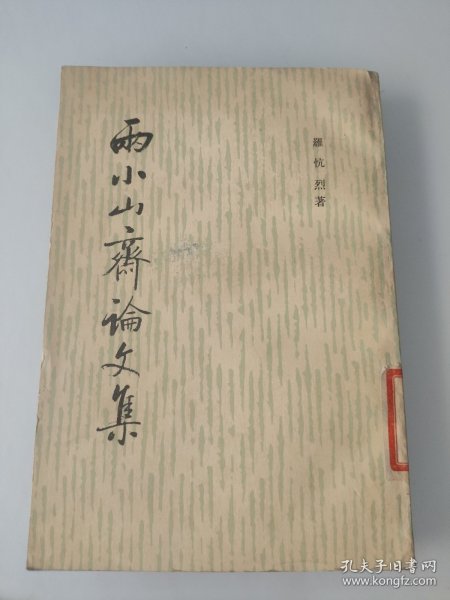 兩小山齋論文集
羅忼烈著
孔夫子旧书网
www.kongfz.com